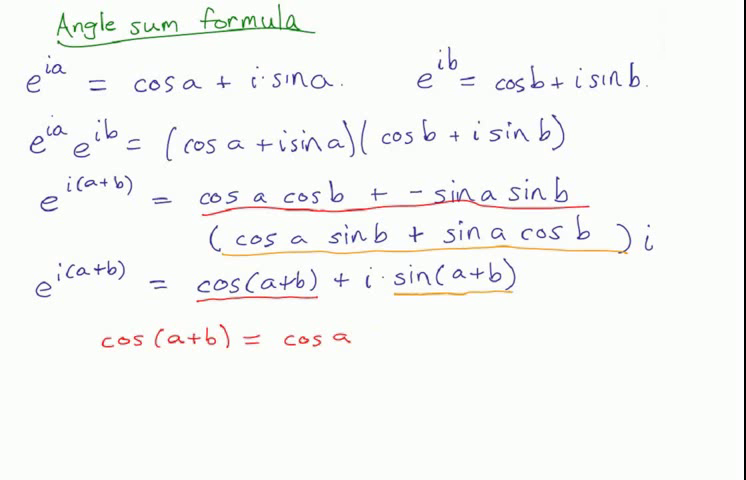 Angle sum formula
e^{ia} = cos a + i · sin a. e^{ib} = cos b + i sin b.
e^{ia} e^{ib} = (cos a + i sin a)(cos b + i sin b)
e^{i(a+b)} = cos a cos b + - sin a sin b
(cos a sin b + sin a cos b) i
e^{i(a+b)} = cos(a+b) + i · sin(a+b)
cos(a+b) = cos a